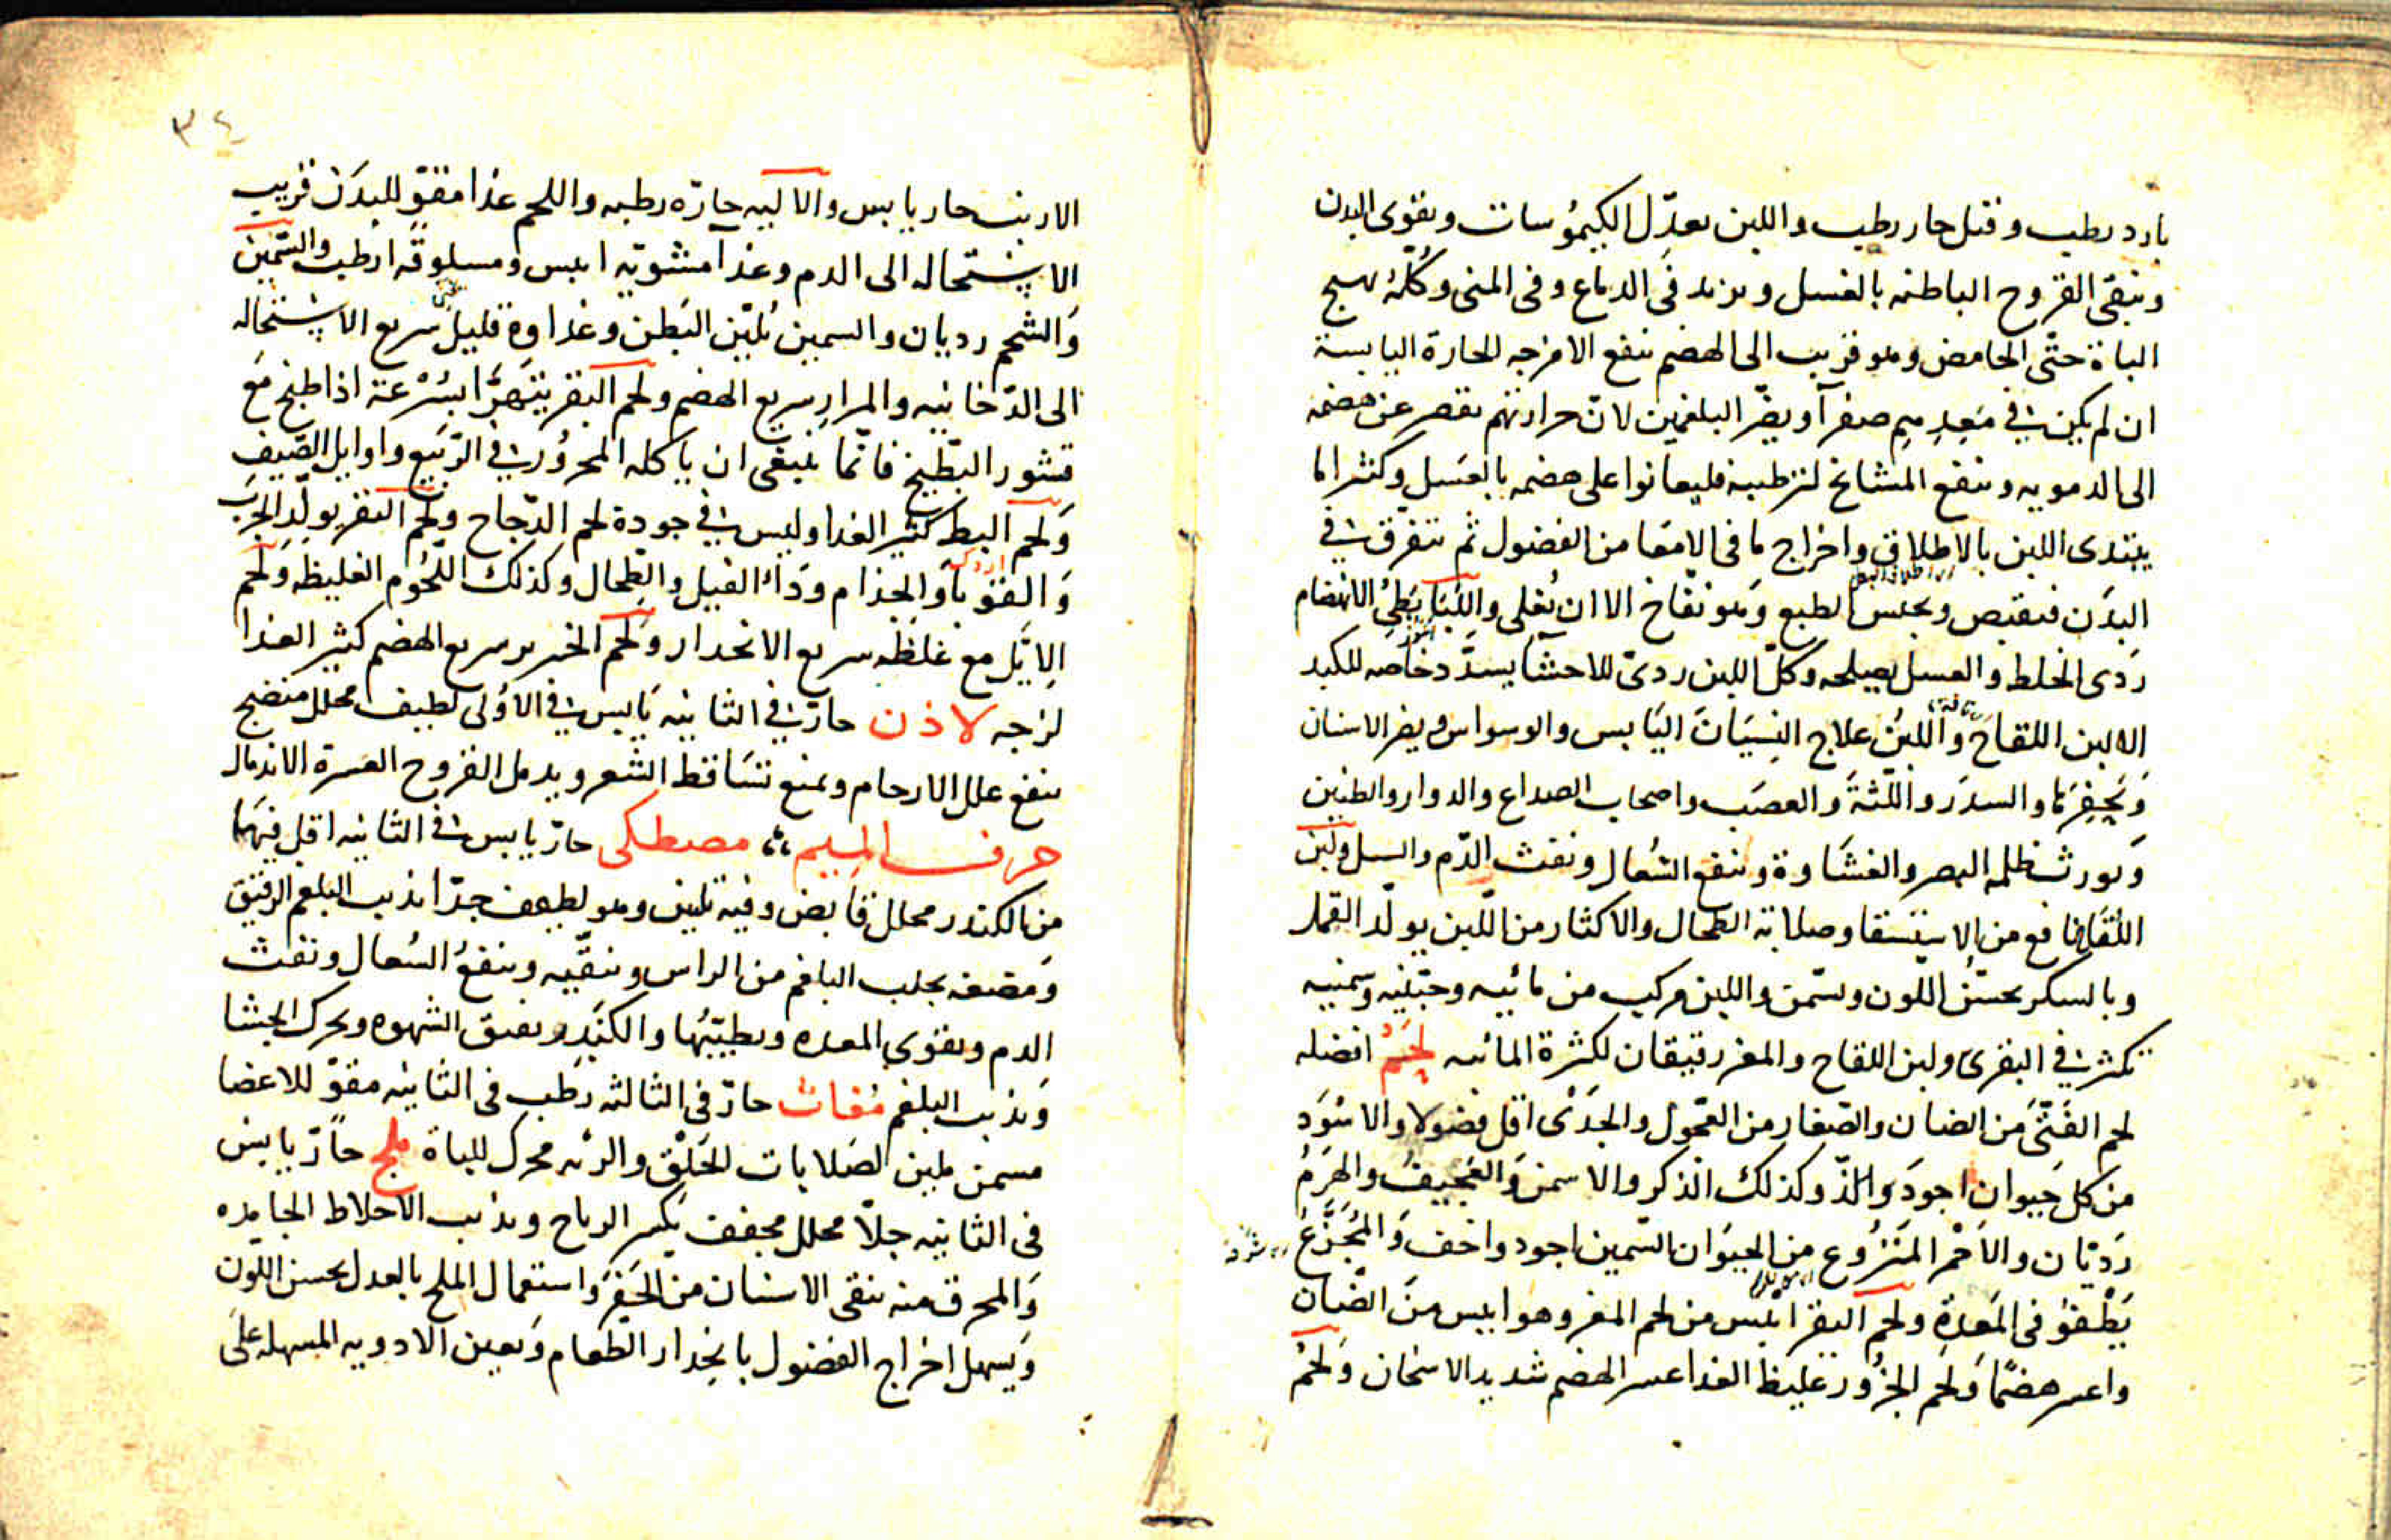 بارد رطب وقيل حار رطب واللبن يعدّل الكيموسات ويقوى البدن
وينقى القروح الباطنه بالغسل ويزيد فى الدماغ وفى المنى وكلّه يهيج
الباة حتّى الحامض وهو قريب الى الهضم ينفع الامزجه الحارة اليابسة
ان لم يكن فى معدهم صفرآ ويضرّ البلغمين لانّ حرارتهم تقصر عن هضمه
الى الدمويه وينفع المشايخ لترطيبه فليعانوا على هضمه بالعسل وكثيرا ما
يبتدى اللبن بالاطلاق واخراج ما فى الامعا من الفضول ثم يتفرق فى
البدَن فيقبض ويحبس الطبع وهو نفّاخ الا ان يُغلى واللّبَا بَطئ الانهضام
ردى الخلط والعسل يصلحه وكلّ اللبن ردىّ للاحشآ يسدّد خاصه للكبد
الا لبن اللقاح واللبن علاج النسيَان اليَابس والوسواس ويضر الاسنان
وَيحفرها والسدَر واللّثةَ والعصَب واصحاب الصداع والدوار والطنين
ويورث ظلمه البصر والغشاوة وينفع السُعال ونفث الدّم والسل ولبن
اللقاح نافع من الاستسقا وصلابة الطحال والاكثار من اللّبن يولّد القمل
وبالسكر يحسّن اللّون ويسّمن واللبن مركب من مائيه وجبّنيه وسمنيه
تكثر فى البقرى ولبن اللقاح والمعز رقيقان لكثرة المائيه لحم افضله
لحم الفَتىّ من الضان والصّغار من العجّول والجَدْى اقل فضولا والاسْوَد
من كل حيوان اجودَ والذّ وكذلك الذكر والاسمن وَالعجيفُ والهَرِمُ
رَديّان والاَحْمر المَنزُوع من الحيوَان السّمين اجود واخف وَالمُجَزَّعُ
يَطْفوُ فى المعدةِ ولحم البقر ايبَس من لحم المعز وهو ايبس منَ الضّان
واعسر هضمًا وَلحم الجزُور غليظ الغدا عسر الهضم شديد الاسخان وَلحمُ
٣٤
الارنب حار يابس والاليه حارّه رطبه واللحم غذا مقوّ للبدَن قريب
الاستحاله الى الدم وغذآ مشويّه ايبس ومسلوقُه ارطب والسّمين
وَالشحم رديان والسمين يُليّن البَطن وغداوة قليل سريع الاستحاله
الى الدّخانيه والمرار سريع الهضم ولحم البقر يتهرّأ بسُرْعة اذا طبخ مَع
قشور البطّيخ فانّما ينبغى ان ياكله المحرُور فى الرّبيع واوايل الصّيف
وَلحم البط كثير الغدا وليس فى جودة لحم الدّجاح ولحم البقر يولّد الجرَب
وَالقوْبآ والجذام ودَاءُ الفيل والطحال وكذلك اللّحُوم الغليظه وَلحم
الايّل مع غلظه سريع الانحدار وَلحم الخنزير سريع الهضم كثير الغدا
لزجه لاذن حارّ فى الثانيه يَابس فى الاوُلى لطيف محلل منضج
ينفع علل الارحام ويمنع تسَاقط الشعر ويدمل القروح العسرة الاندمال
حرف المِيم مصطكى حارّ يابس فى الثانيه اقل فيهما
من الكندر محلل قابض وفيه تليين وهو لطيف جدّا يذيب البلغم الرقيق
وَمضغه يجلب البلغم من الراس وينقّيه وينفعُ السُعال ونفث
الدم ويقوي المعده ويطيّبُها والكبَد ويفتق الشهوه ويحرك الجشا
وَيذيب البلغم مُغاث حارّ فى الثالثه رَطب فى الثانيه مقوّ للاعضا
مسمن ملين لصَلابات الحَلق والرئه محرك للباة ملح حارّ يابس
فى الثانيه جلاّ محلل مجفف يكسر الرياح ويذيب الاخلاط الجامده
وَالمحرق منه ينقى الاسنان من الحَفَر وَاستعمال الملح بالعدل يحسن اللّون
وَيسهل اخراج الفضول بانحِدار الطعَام وَيعين الادويه المسهله على